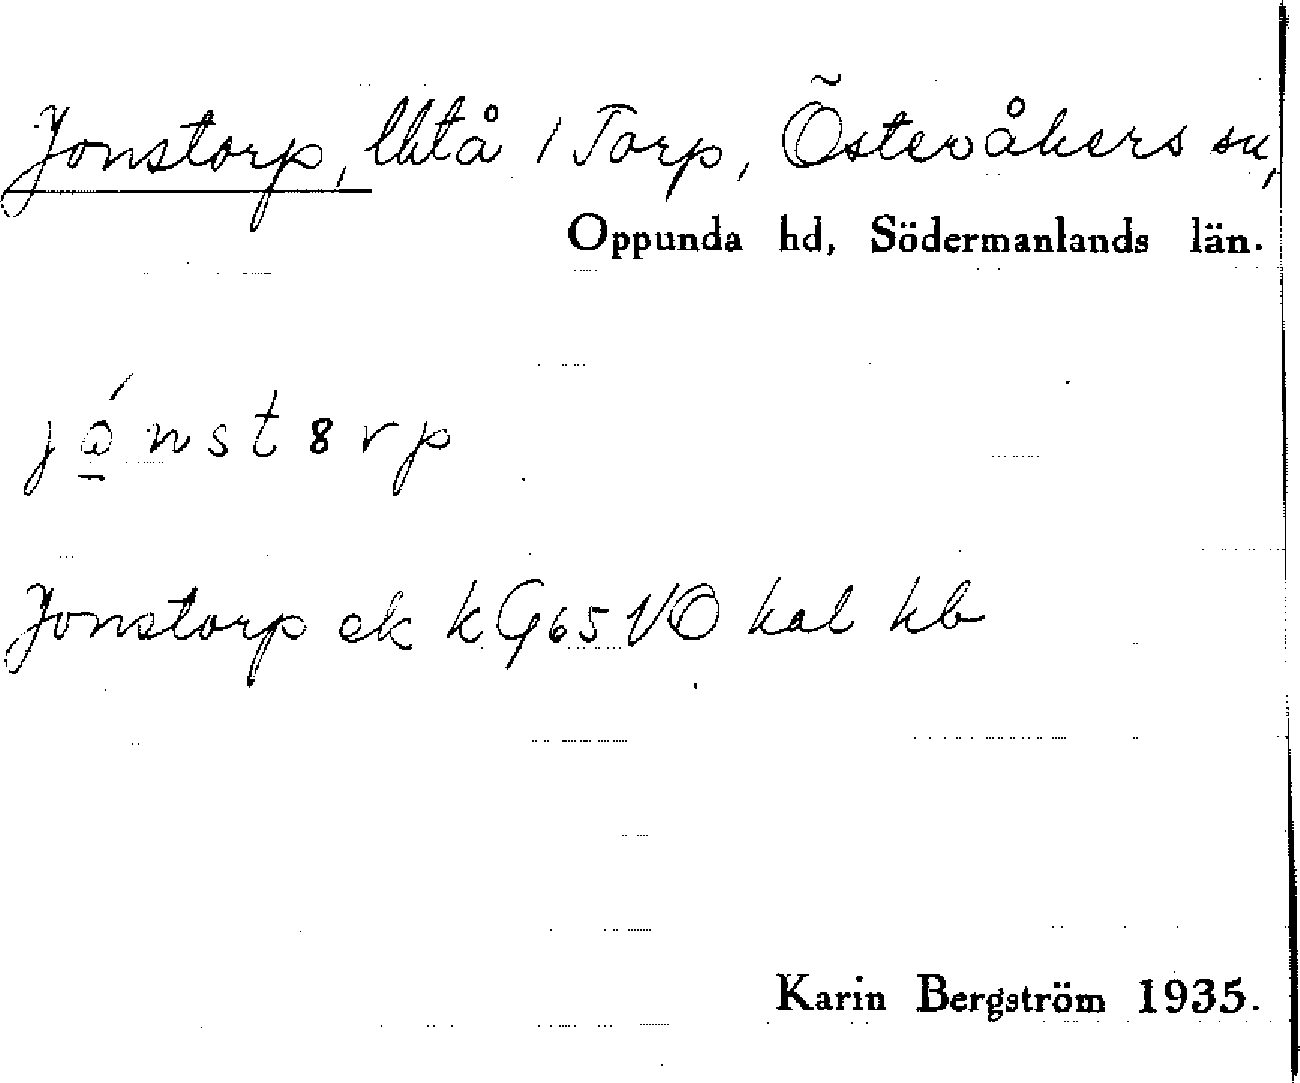 Jonstorp, lht å 1 Torp, Österåkers sn,
Oppunda hd, Södermanlands län.
jó̲nst8rp
Jonstorp ek k G65 VO hal kb
Karin Bergström 1935.